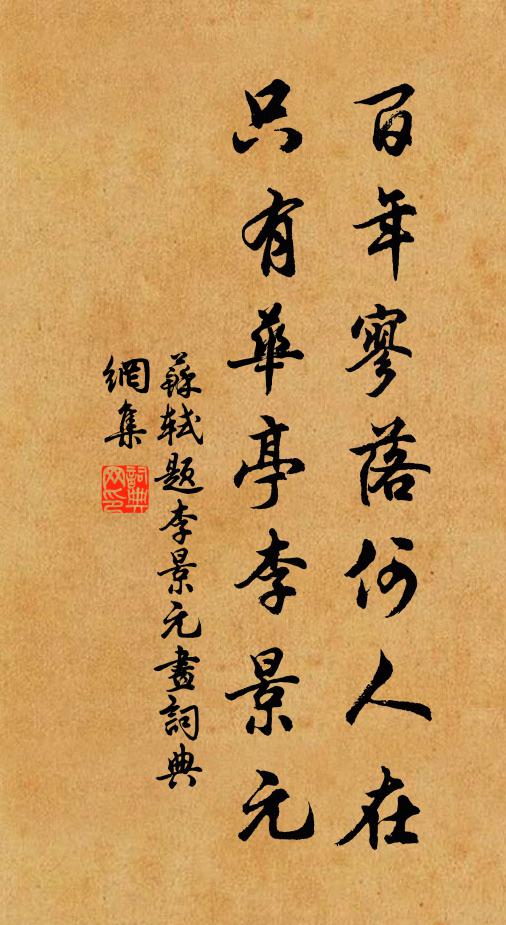 百年寥落何人在
只有華亭李景元
蘇軾題李景元畫詞典
網集
詞典
网印